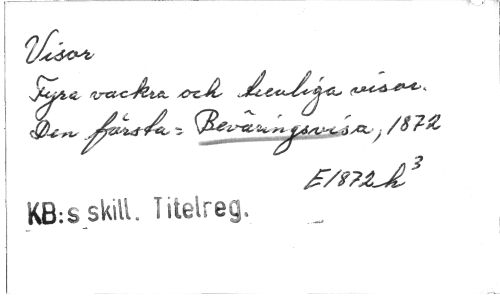 Visor
Fyra vackra och treuliga visor.
Den första = Beväringsvisa, 1872
E1872h³
KB:s skill. Titelreg.